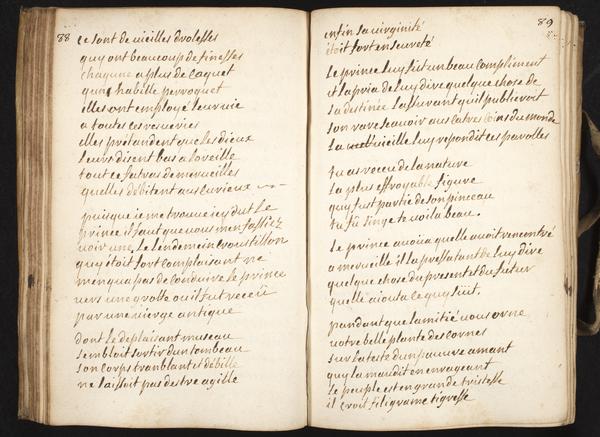 88
ce sont de vieilles drolesses
quy ont beaucoup de finesses
chaqune a plus de caquet
qun habille perroquet
elles ont employé leur vie
a toutes ces resveries
elles prétandent que les dieux
leurs disent bas a loreille
tout ce fatras de merveilles
quelles débitent aus curieux
puis que ie me trouve icy dit Le
prince il faut que vous men fassiez
voir une, Le Lendemain croustillon
quy étoit fort complaisant ne
menqua pas de conduire Le prince
vers une grotte ou il fut receü
par une vierge antique
dont Le deplaisant museau
sembloit sortir dun tombeau
son corps tranblant et débille
ne Laissoit pas destre agille
89
enfin sa virginité
étoit fort en seureté
Le prince Luy fit un beau compliment
et La pria de Luy dire quelque chose de
sa destinée Lassurant quil publieroit
son rare scavoir aus catres coins du monde
La vieille Luy repondit ces parolles
tu as receu de la nature
La plus effroyable figure
quy fust partie de son pinceau
tu fü singe te voila beau.
Le prince avoüa quelle avoit rencontré
a merveille il La pressa tant de Luy dire
quelque chose du present et du futur
quelle aiouta ce quy süit.
pandant que Lamitié vous orne
votre belle plante des cornes
sur La teste dun pauvre amant
quy La maudit en enrageant
Le peuple est en grande tristesse
il croit filigrame tigresse